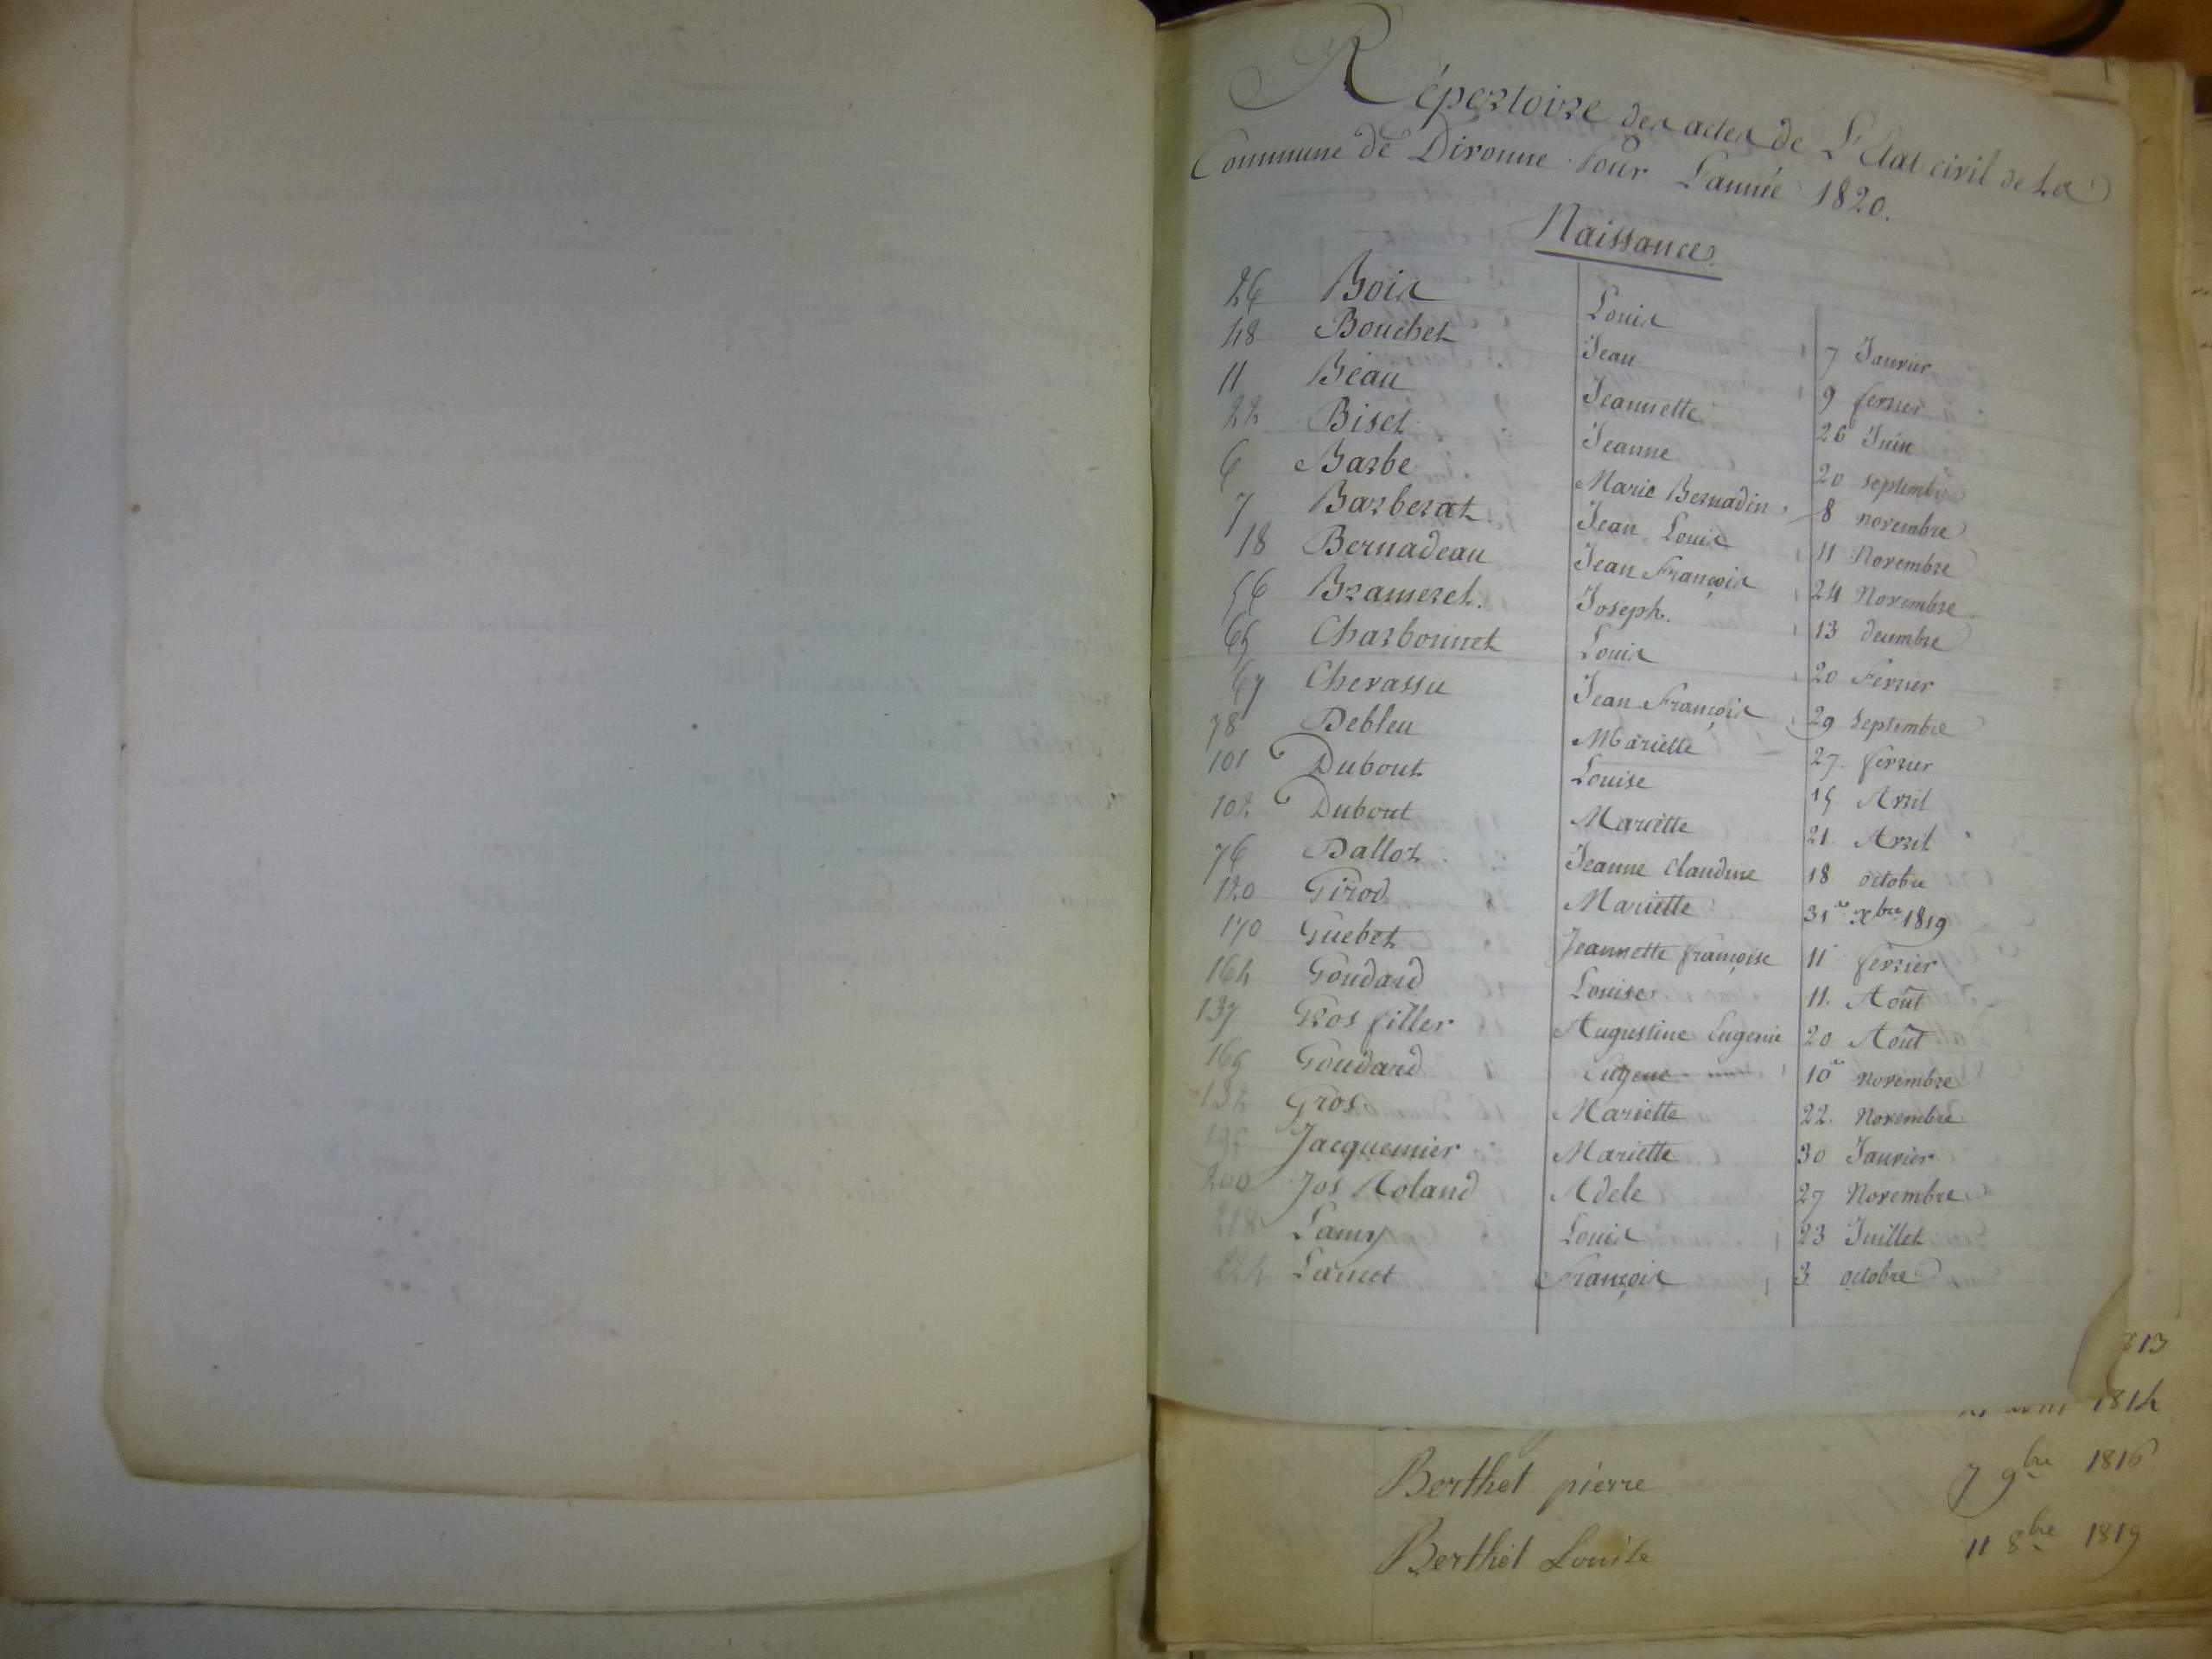 Répertoire des actes de L'Etat civil de La
Commune de Divonne Pour L'année 1820.
Naissances
26 Bois Louis 7 Janvier
48 Bouchet Jean 9 fevrier
11 Beau Jeannette 26 Juin
22 Biset Jeanne 20 septembre
6 Barbe Marie Bernadin 8 novembre
7 Barberat Jean Louis 11 Novembre
18 Bernadeau Jean François 24 Novembre
56 Brameret Joseph. 13 decembre
65 Charbonnet Louis 20 Fevrier
67 Chevassu Jean François 29 Septembre
78 Debleu Mariette 27. fevrier
101 Dubout Louise 15 Avril
102 Dubout Mariette 21. Avril
76 Dalloz Jeanne Claudine 18 octobre
120 Girod Mariette 31 Xbre 1819
170 Guebet Jeannette françoise 11 fevrier
164 Goudard Louise 11. Août
137 Gros filler Augustine Eugenie 20 Août
165 Goudard Eugene 10 novembre
132 Gros Mariette 22. Novembre
195 Jacquemier Mariette 30 Janvier
200 Jos Roland Adele 27 Novembre
218 Lamy Louis 23 Juillet
224 Lancot François 3 octobre
813
1814
Berthet pierre 7 9bre 1816
Berthet Louise 11 8bre 1819